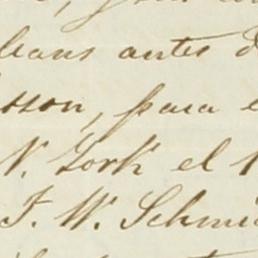 leans antes d
sson, para e
N. York el 1
F. W. Schmi